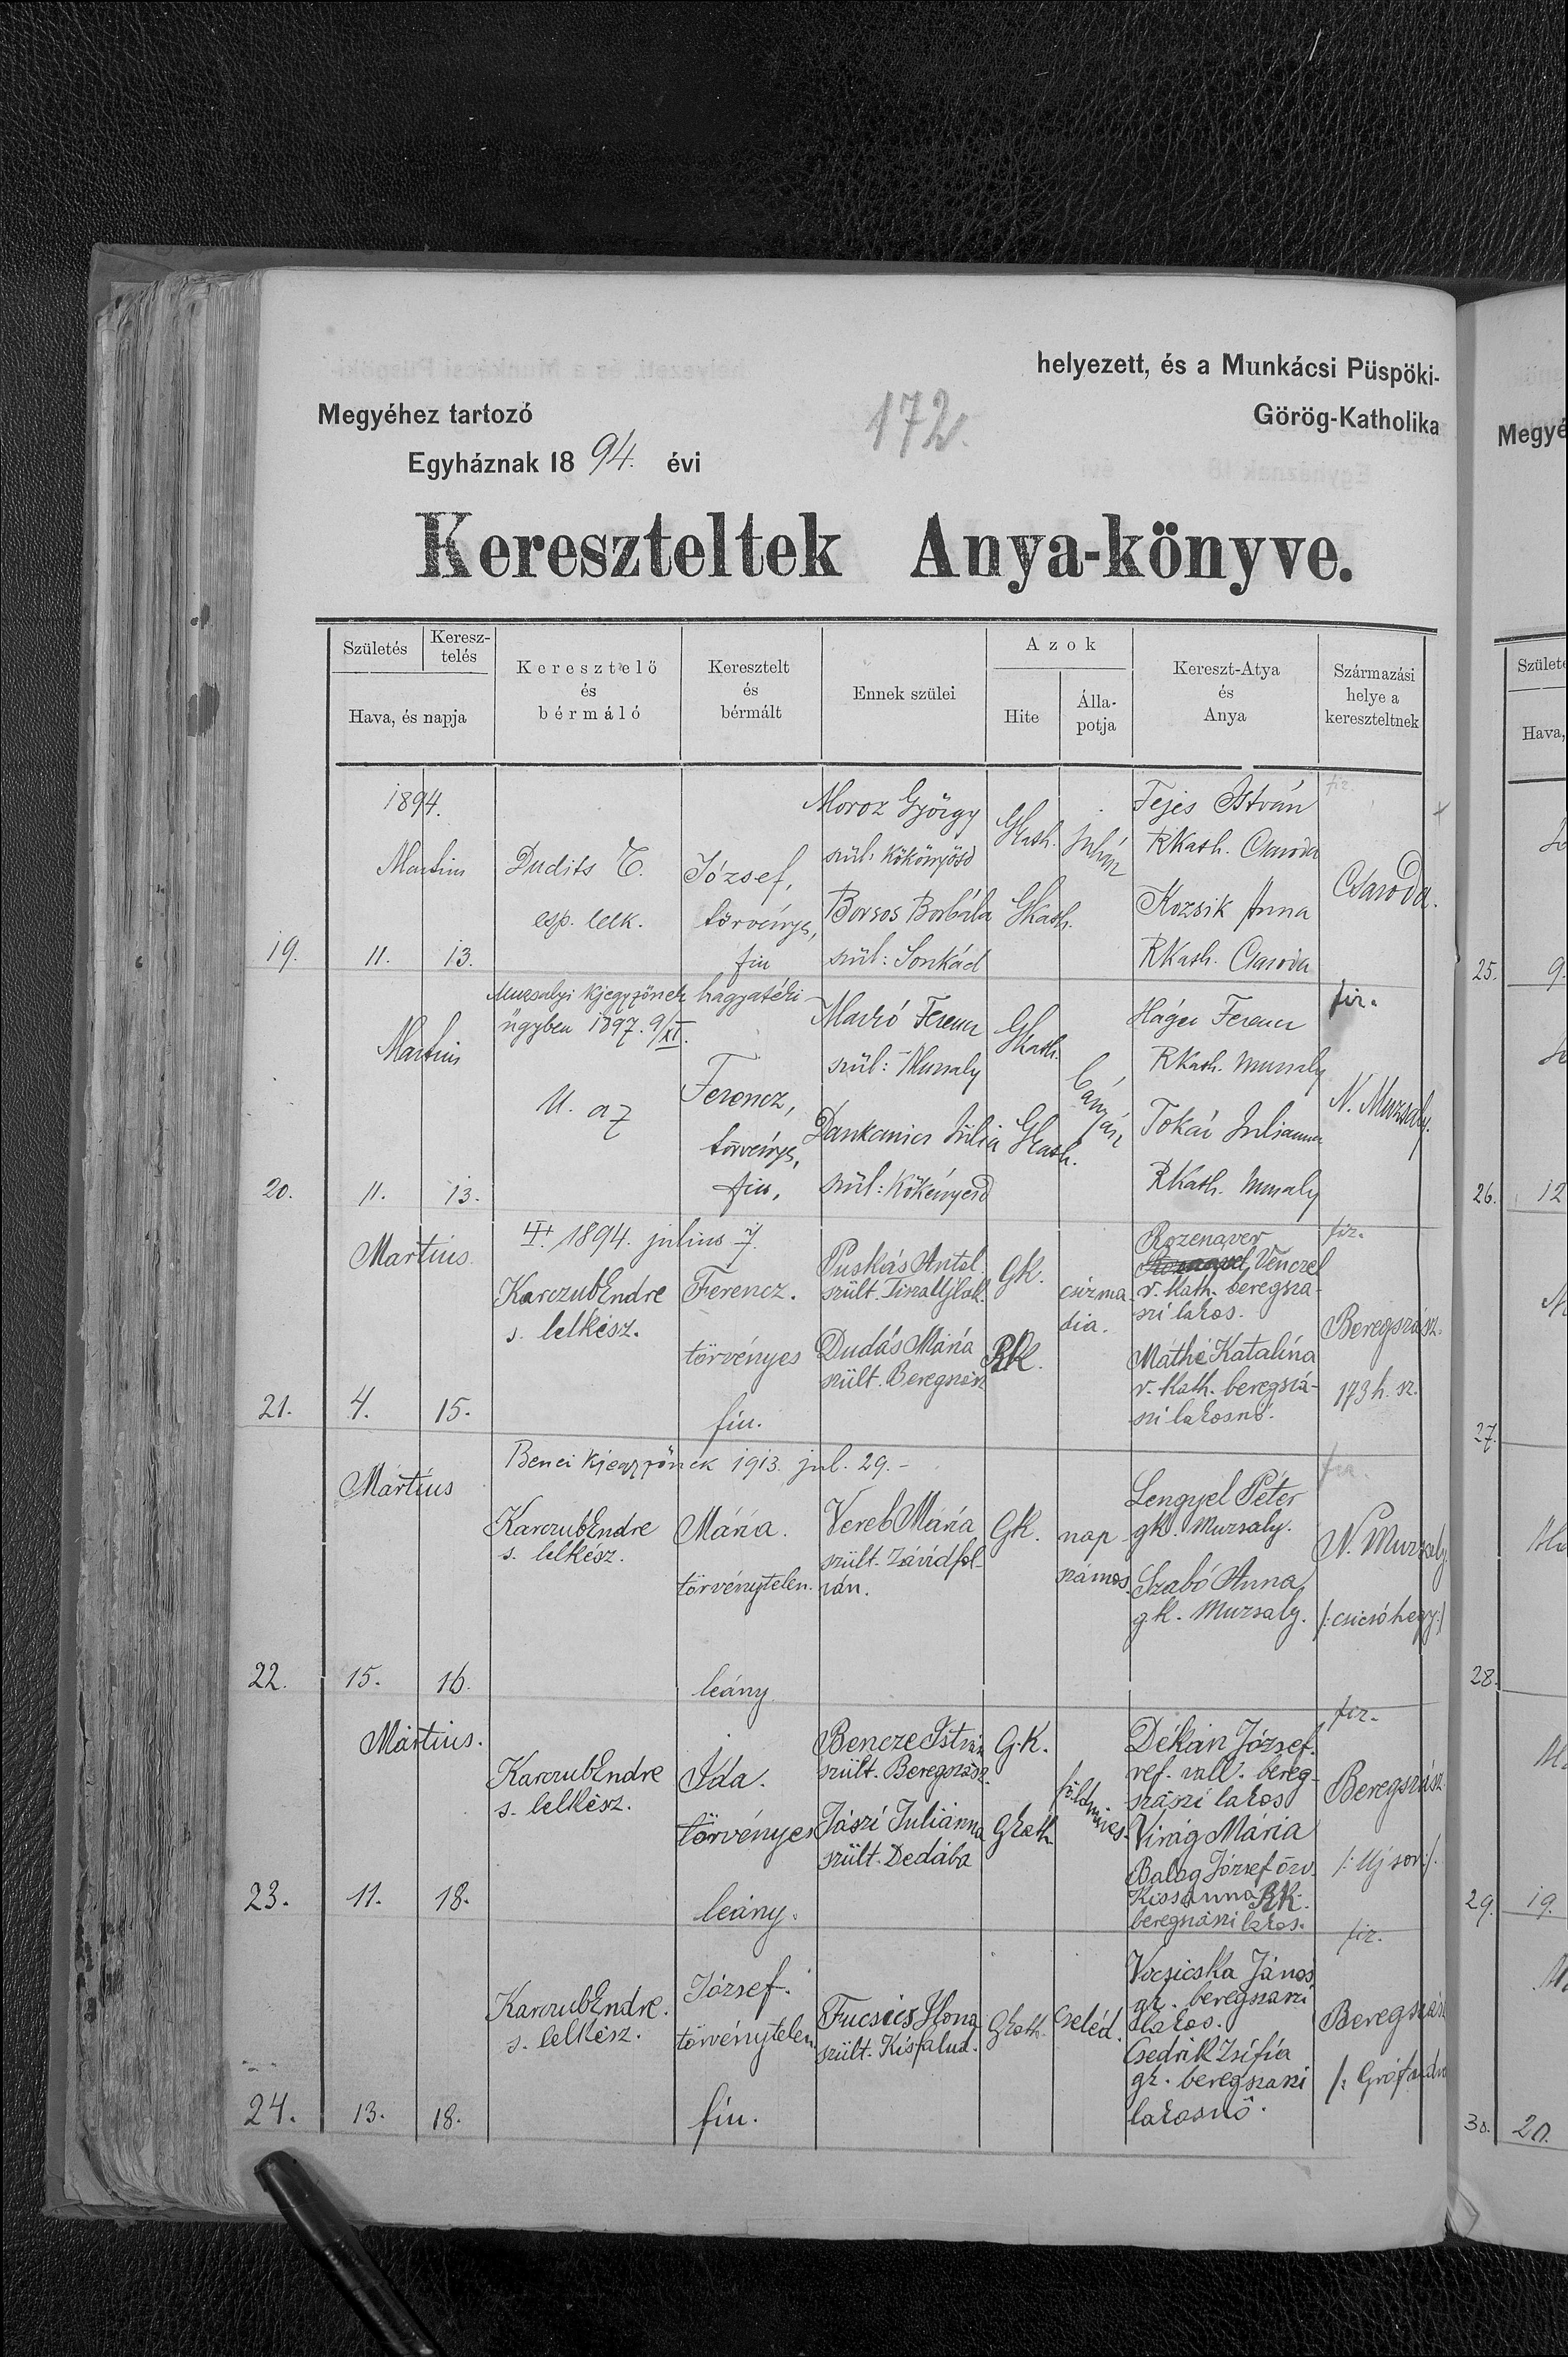 helyezett, és a Munkácsi Püspöki-
Megyéhez tartozó
172.
Görög-Katholika
Egyháznak 1894. évi
Kereszteltek Anya-könyve.
Születés
Keresz-
telés
Hava, és napja
Keresztelő
és
bérmáló
Keresztelt
és
bérmált
Ennek szülei
Azok
Hite
Álla-
potja
Kereszt-Atya
és
Anya
Származási
helye a
kereszteltnek
1894.
Martius
19. 11. 13.
Dudits E.
esp. lelk.
József,
törvényes,
fiu
Moroz György
szül: Kökönyösd
Borsos Borbála
szül: Sonkád
GKath.
GKath.
juhász
Fejes István
RKath. Csaroda
Kozsik Anna
RKath. Csaroda
fiz.
Csaroda.
Muzsalyi Kjegyzönek hagyatéki
ügyben 1897. 9/XI.
Martius
20. 11. 13.
U. az
Ferencz,
törvényes,
fiu,
Markó Ferencz
szül: Muzsaly
Dankanics Julia
szül: Kökényesd
GKath.
GKath.
bányász
Háger Ferencz
RKath. Muzsaly
Tokár Julianna
RKath. Muzsaly
fiz.
N. Muzsaly.
1894. julius 7.
Martius
21. 4. 15.
Karczub Endre
s. lelkész.
Ferencz.
törvényes
fiu.
Puskás Antal.
szült. TiszaUjlak.
Dudás Mária
szült. Beregszász
GK.
RK.
csizma
dia.
Rozenaver
Venczel
r. Kath. beregszá-
szi lakos.
Máthé Katalina
r. Kath. beregszá-
szi lakosnő.
fiz.
Beregszász.
173 h. sz.
Benei Kjegyzőnek 1913. jul. 29.-
Mártius
22. 15. 16.
Karczub Endre
s. lelkész.
Mária.
törvénytelen.
leány
Vereb Mária
szült. Závidfal-
ván.
GK.
nap
számos.
Lengyel Péter
gk. Muzsaly.
Szabó Anna
gk. Muzsaly.
N. Muzsaly
/: csicsóhegy :/
Mártius.
23. 11. 18.
Karczub Endre
s. lelkész.
Ida.
törvényes
leány.
Bencze István
szült. Beregszász.
Jászi Juliánna
szült. Dedába
G.K.
GKath
földmives.
Dékán József.
ref. vall. bereg-
szászi lakos
Virág Mária
Balog József özv.
Kiss Anna RK.
beregszászi lakos.
fiz.
Beregszász
/: Uj sor :/.
24. 13. 18.
Karczub Endre.
s. lelkész.
József.
törvénytelen
fiu.
Fucsics Ilona
szült. Kisfalud.
GKath.
cseléd.
Vocsicska János
gk. beregszászi
lakos.
Csedrik Zsófia
gk. beregszászi
lakosnő.
fiz.
Beregszász
Megyé
Születé
Hava,
25. 9.
26. 12
27.
28.
29. 19.
30. 20.